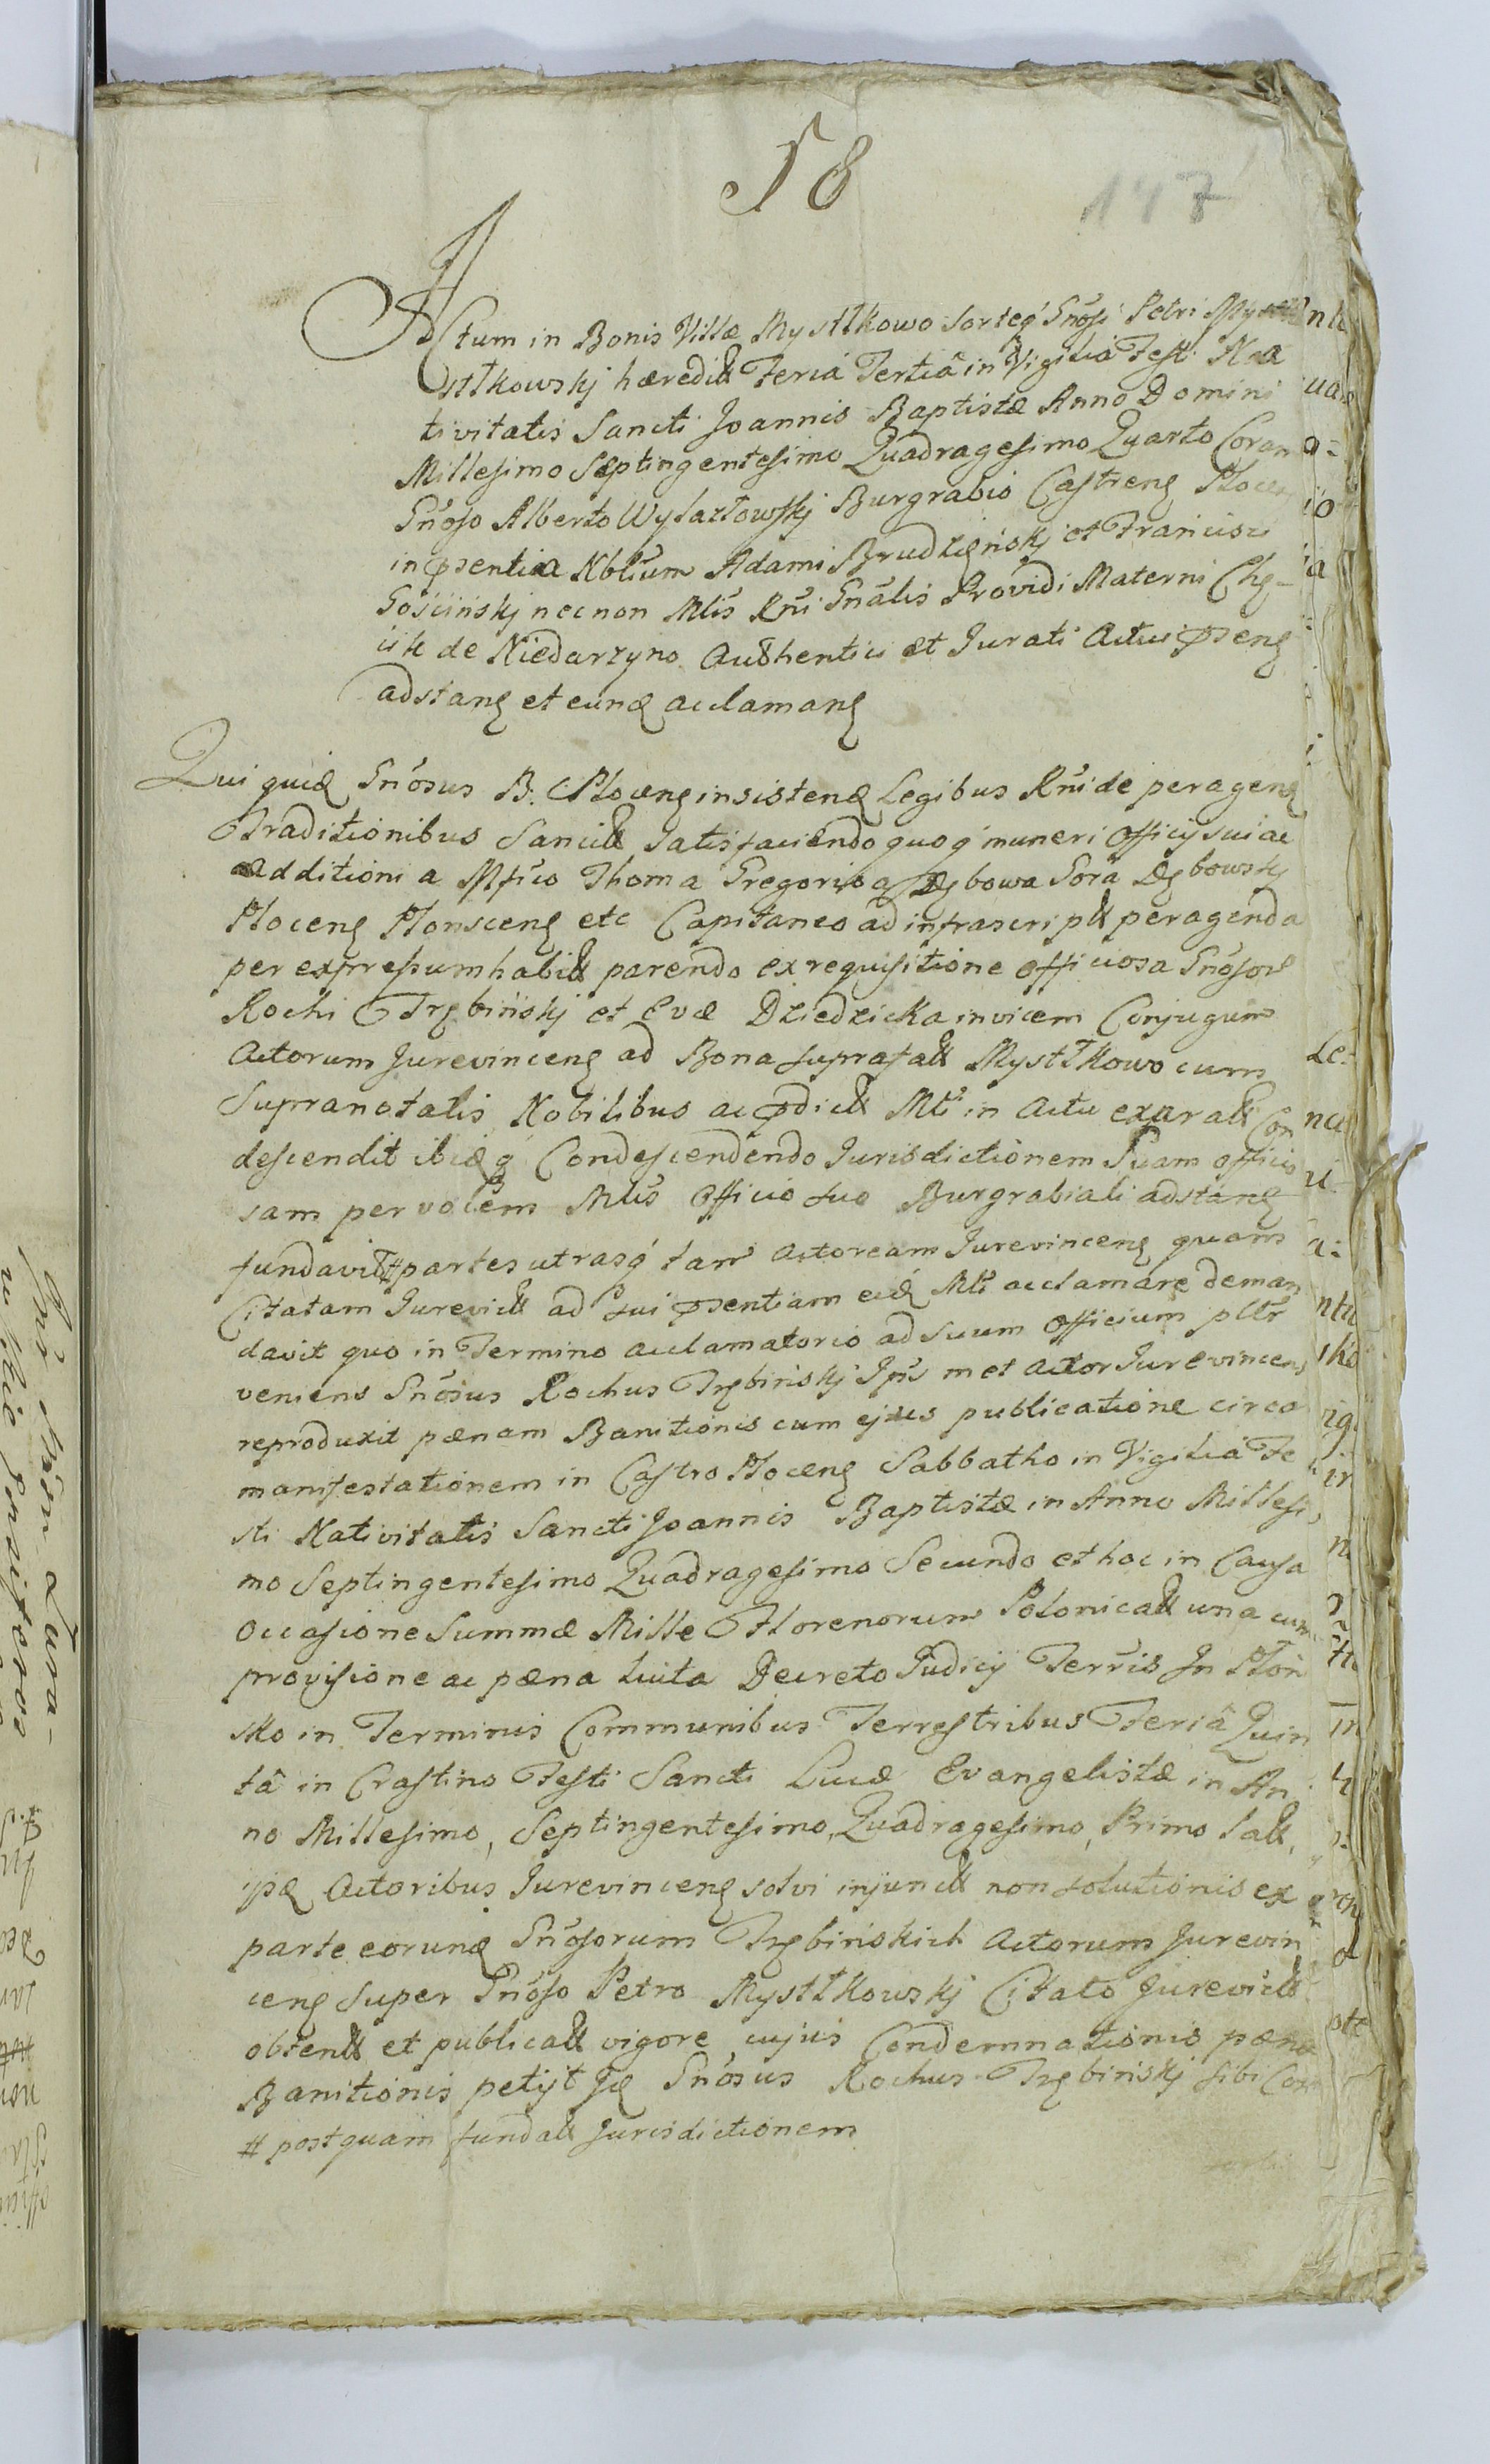 58
147
Actum in Bonis Villæ Mysttkowo sorteq́ Gnosi Petri Mys
sttkowskj hæredit Feriá Tertiâ in Vigiliá Festi Na
tivitatis Sancti Joannis Baptistæ Anno Domini
Millesimo Septingentesimo Quadragesimo Quarto Coram
Gnoso Alberto Wylazłowskj Burgrabio Castren Plocen
in pſentia Nblium Adami Brudzęnskj et Francisci
Gosciinskj necnon Mlis Rni Gnalis Providi Materni Chę-
cik de Niedarzyno Authentici et Jurati Actui pſen
adstan et eund acclaman
Qui quid Gnosus B. Plocen insistend Legibus Rni de peragen
Traditionibus Sancit satisfaciendo quoq́ muneri Officij sui ac
additioni a Mfico Thoma Gregorio a Dębowa Gora Dębowskj
Plocen Plonscen etc Capitaneo ad infrascript peragenda
per expressum habit parendo ex requisitione officiosa Gnosor
Rochi Trębinskj et Evæ Dziedzicka invicem Conjugum
Actorum Jurevincen ad Bona suprafat Mysttkowo cum
Supranotatis Nobilibus ac pdict Mli in Actu exarat Con
descendit ibidq́ Condescendendo Jurisdictionem Suam officio
sam per vocem Mlis Officio suo Burgrabiali adstan
fundavit # partes utrasq́ tam Actoream Jurevincen quam
Citatam Jurevict ad sui pſentiam eid Mli acclamare deman
davit quo in Termino acclamatorio ad suum Officium pltr
veniens Gnosus Rochus Trębinskj Ipse met Actor Jurevincens
reproduxit pænam Banitionis cum ejus publicatione circa
manifestationem in Castro Plocen Sabbatho in Vigiliá Fe
sti Nativitatis Sancti Joannis Baptistæ in Anno Millesi
mo Septingentesimo Quadragesimo Secundo et hoc in Causa
Occasione Summæ Mille Florenorum Polonicat una cum
provisione ac pæna luita Decreto Judicij Terris In Plon
sko in Terminis Communibus Terrestribus Feriâ Quin
tâ in Crastino Festi Sancti Lucæ Evangelistæ in An
no Millesimo, Septingentesimo, Quadragesimo, Primo lat,
ipse Actoribus Jurevincen solvi injunct non solutionis ex
parte eorund Gnosorum Trębinskich Actorum Jurevin
cen super Gnoso Petro Mysttkowskj Citato Jurevict
obtent et publicat vigore cujus Condemnationis pænæ
Banitionis petijt Id Gnosus Rochus Trębinskj sibi Con
# postquam fundat Jurisdictionem